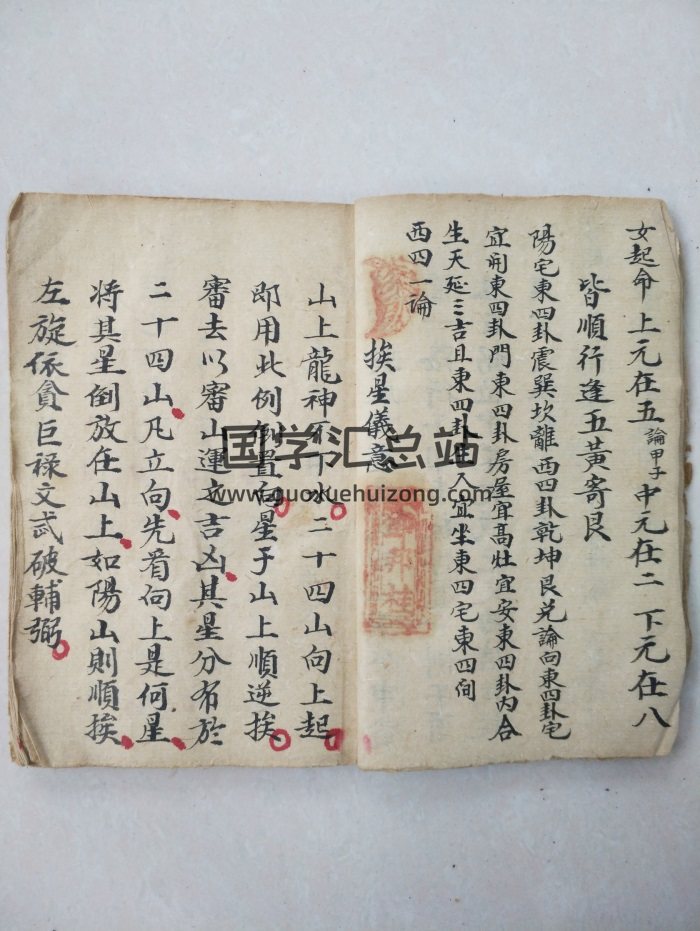 女起命上元在五論甲子中元在二下元在八
皆順行逢五黃寄艮
陽宅東四卦震巽坎離西四卦乾坤艮兌論向東四卦宅
宜開東四卦門東四卦房屋宜高灶宜安東四卦內合
生天延三吉且東四卦生人宜坐東四宅東四间
西四一論
挨星儀意
山上龍神不下水二十四山向上起
即用此例倒置向星于山上順逆挨
審去以審山運之吉凶其星分布於
二十四山凡立向先看向上是何星
將其星倒放在山上如陽山則順挨
左旋依貪巨祿文武破輔弼
国学汇总站
www.guoxuehuizong.com